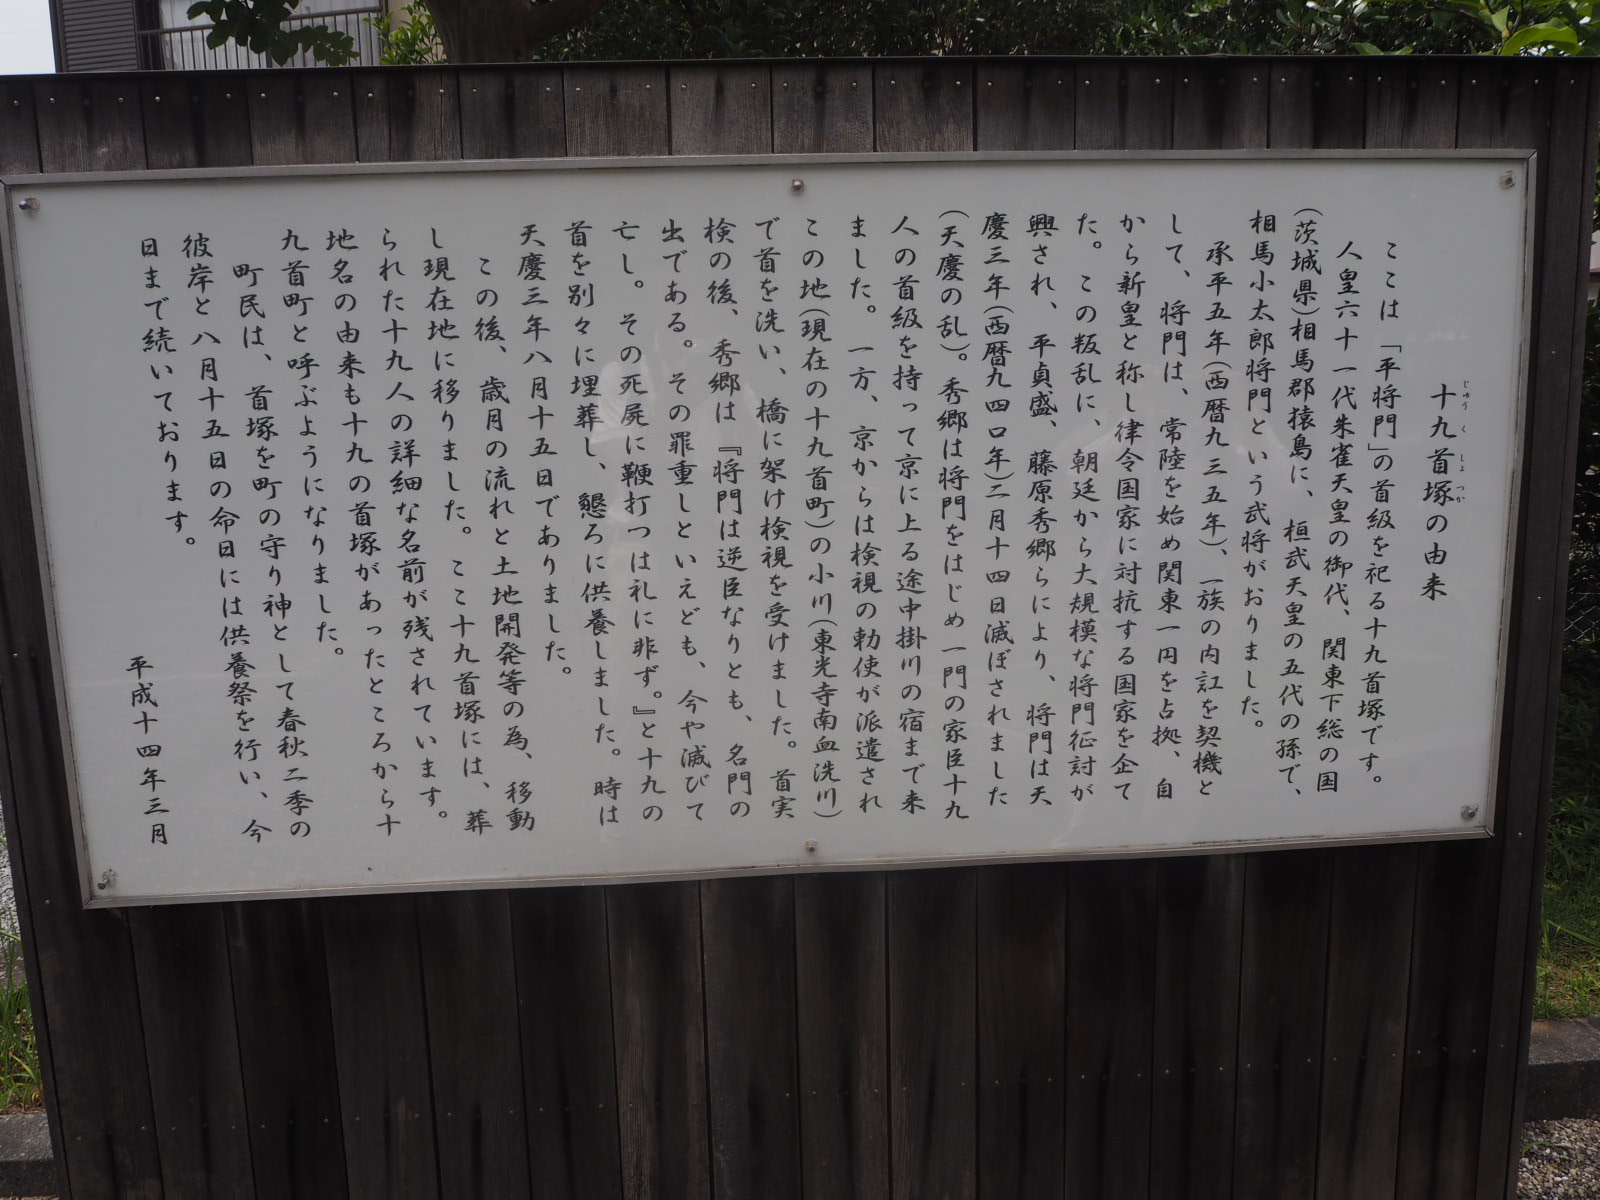 十九首塚の由来
じゅうくしょつか
ここは「平将門」の首級を祀る十九首塚です。
人皇六十一代朱雀天皇の御代、関東下総の国
(茨城県)相馬郡猿島に、桓武天皇の五代の孫で、
相馬小太郎将門という武将がおりました。
承平五年(西暦九三五年)、一族の内訌を契機と
して、将門は、常陸を始め関東一円を占拠、自
から新皇と称し律令国家に対抗する国家を企て
た。この叛乱に、朝廷から大規模な将門征討が
興され、平貞盛、藤原秀郷らにより、将門は天
慶三年(西暦九四口年)二月十四日滅ぼされました
(天慶の乱)。秀郷は将門をはじめ一門の家臣十九
人の首級を持って京に上る途中掛川の宿まで来
ました。一方、京からは検視の勅使が派遣され
この地(現在の十九首町)の小川(東光寺南血洗川)
で首を洗い、橋に架け検視を受けました。首実
検の後、秀郷は『将門は逆臣なりとも、名門の
出である。その罪重しといえども、今や滅びて
亡し。その死屍に鞭打つは礼に非ず。』と十九の
首を別々に埋葬し、懇ろに供養しました。時は
天慶三年八月十五日でありました。
この後、歳月の流れと土地開発等の為、移動
し現在地に移りました。ここ十九首塚には、葬
られた十九人の詳細な名前が残されています。
地名の由来も十九の首塚があったところから十
九首町と呼ぶようになりました。
町民は、首塚を町の守り神として春秋二季の
彼岸と八月十五日の命日には供養祭を行い、今
日まで続いております。
平成十四年三月